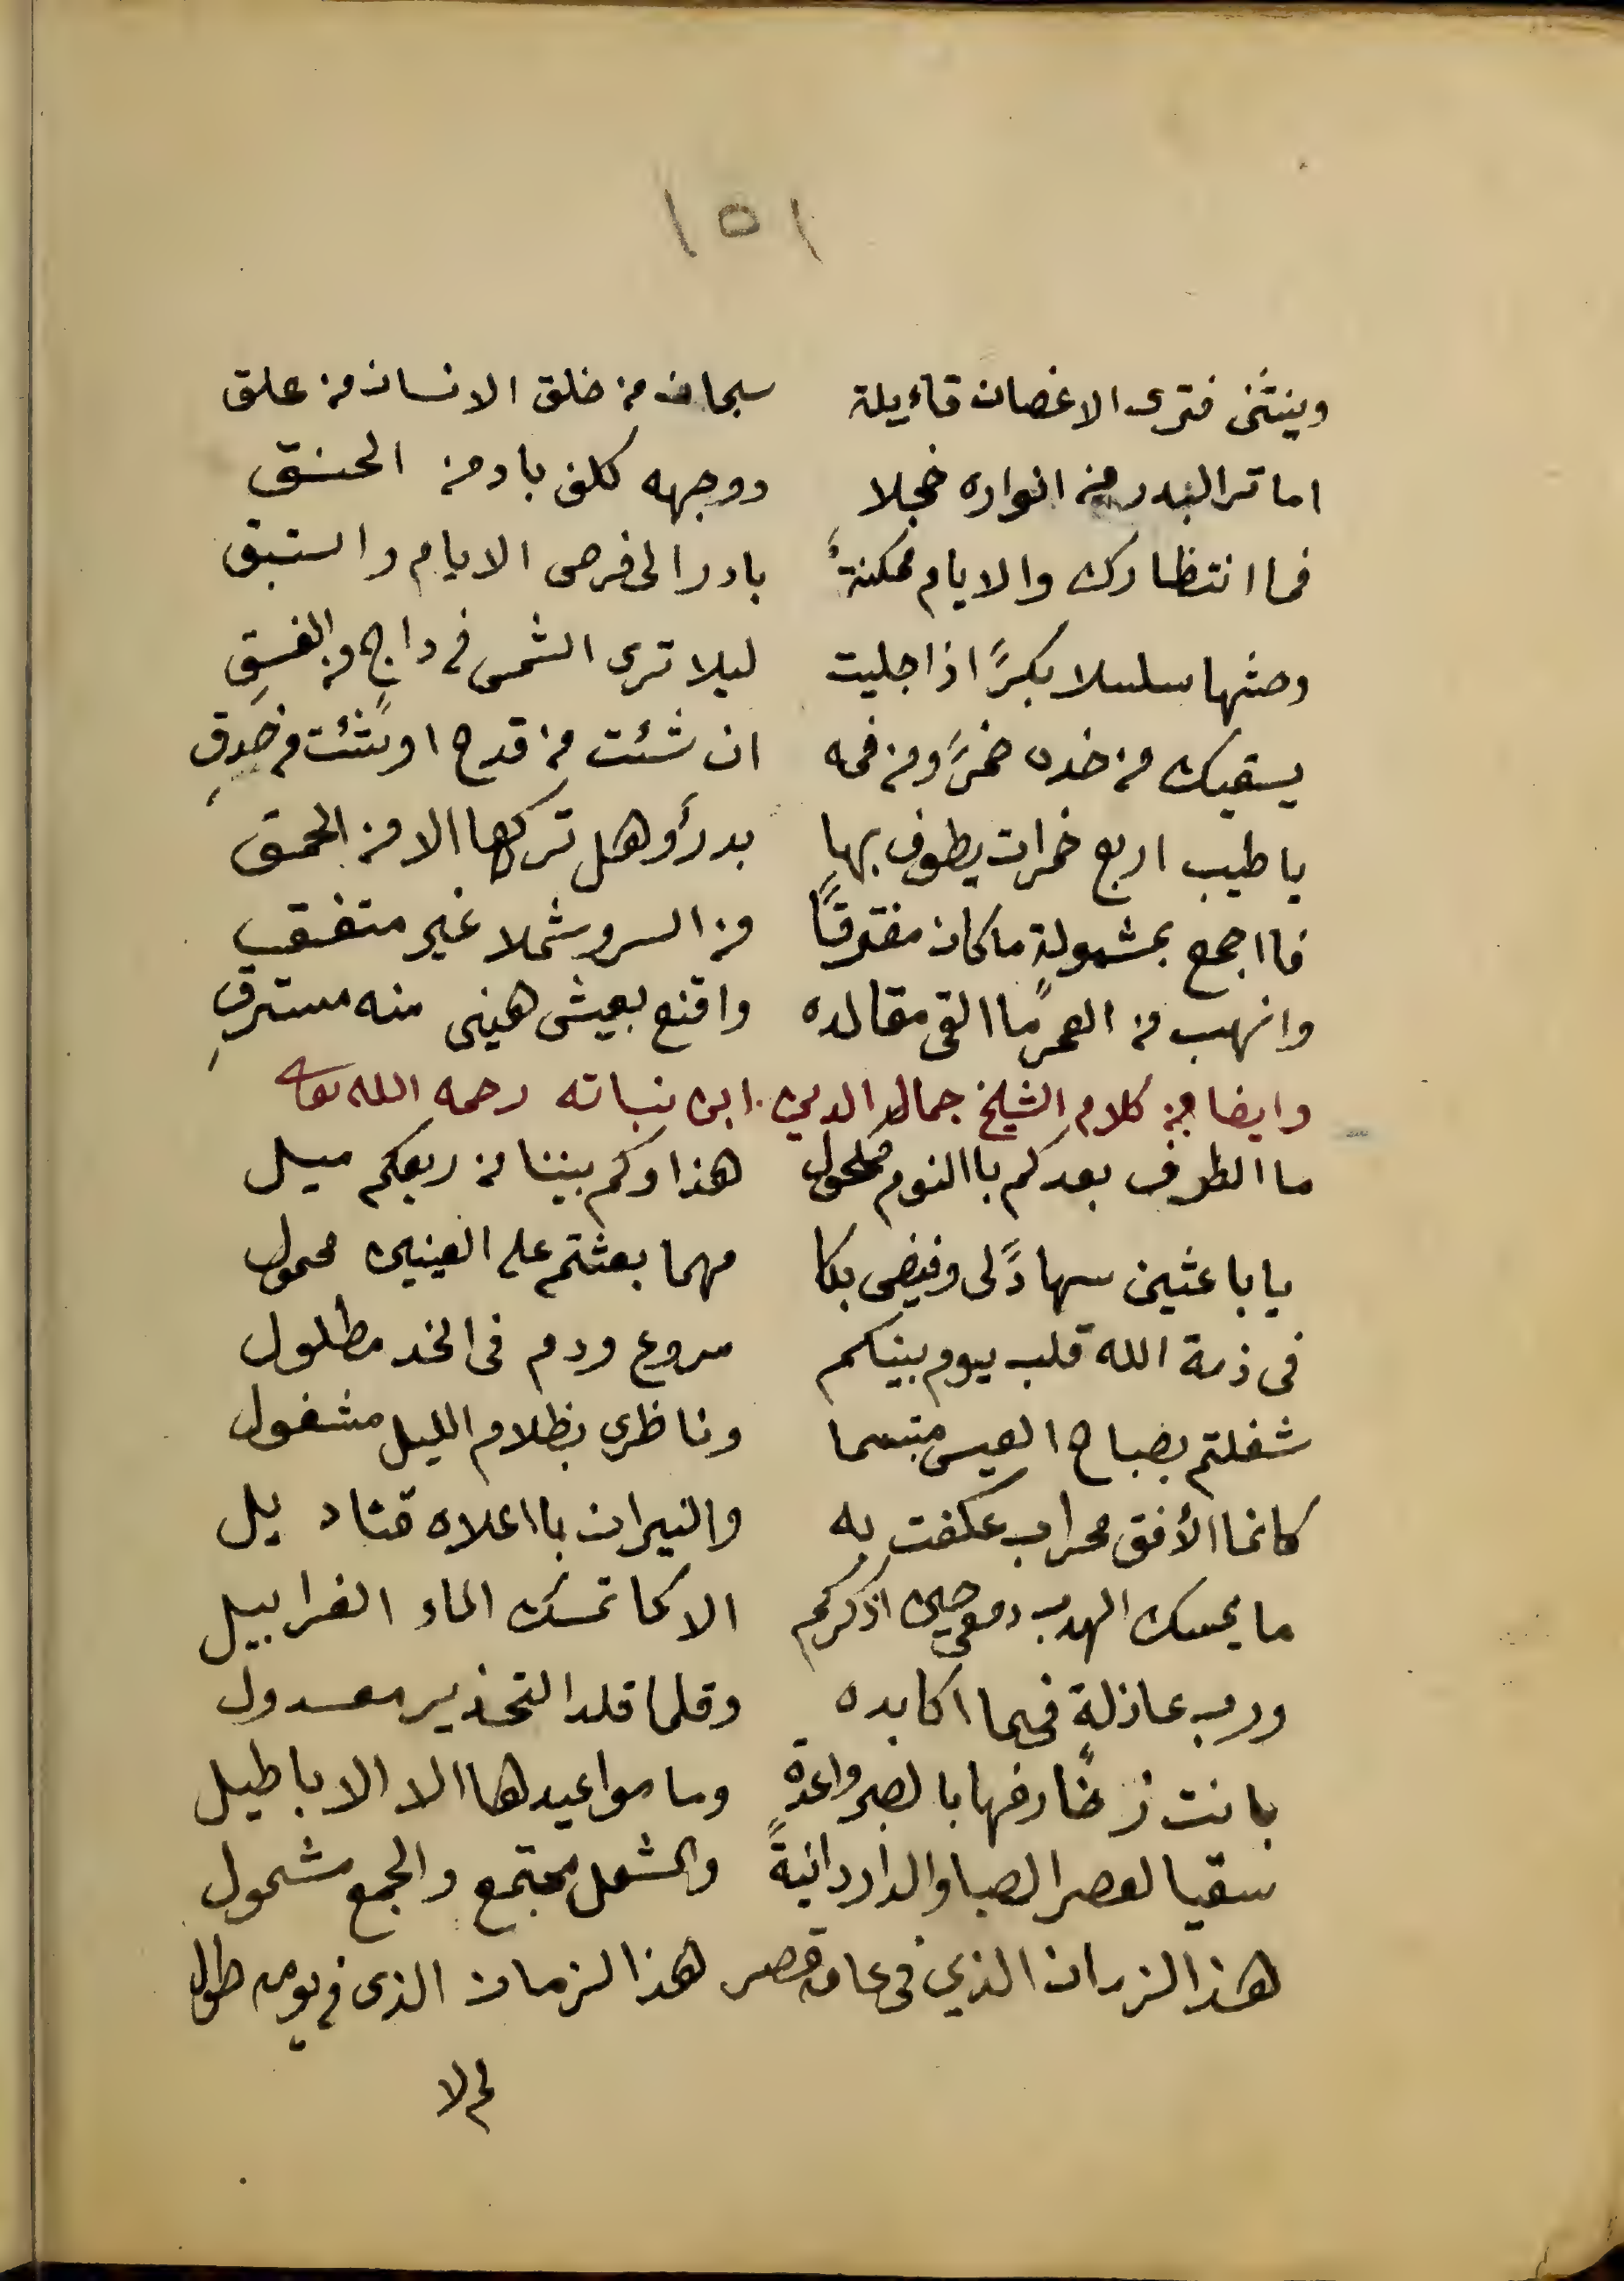 ١٥١
وينثنى فترى الاغصان قاءيلة سبحان من خلق الانسان من علق
اما ترا البدر من انواره خجلا ووجهه كلف باد من الحنق
فما انتظارك والايام ممكنةً بادر الى فرص الايام واستبق
وحثها سلسلا بكرًا اذا جليت ليلا ترى الشمس فى داجٍ من الغسقِ
يسقيك من خده خمرًا ومن فمه ان شئت من قدح او شئت من حدقِ
يا طيب اربع خمرات يطوف بها بدرًا وهل تركها الا من الحمق
فااجمع بمشمولةٍ ما كان مفترقًا من السرو شملا غير متفق
وانهب من العمر ما القى مقالده واقنع بعيش هنيى منه مسترقِ
وايضا من كلام الشيخ جمال الدين ابن نباته رحمه الله تعالى
ما الطرف بعدكم باالنوم مكحول هذا وكم بيننا من ربعكم ميل
يا باعثين سهادًا لى وفيض بكا مهما بعثتم على العينين محمول
فى ذمة الله قلب يوم بينكم مروع ودم فى الخد مطلول
شغلتم بصباح العيس مبتسما وناظرى بظلام الليل مشغول
كانما الأفق محراب عكفت به والنيران بااعلاه قناديل
ما يمسك الهدب دمعى حين اذكركم الا كما تمسك الماء الغرابيل
ورب عاذلةٍ فيما اكابده وقلما قلد التحذير معدول
بانت زخارفها بالصبر واعدةً وما مواعيدها الا الاباطيل
سقيا لعصر الصبا والدار دانيةً والشمل مجتمع والجمع مشمول
هذا الزمان الذي فى عامه قصر هذا لزمان الذى فى يومه طول
لم لا